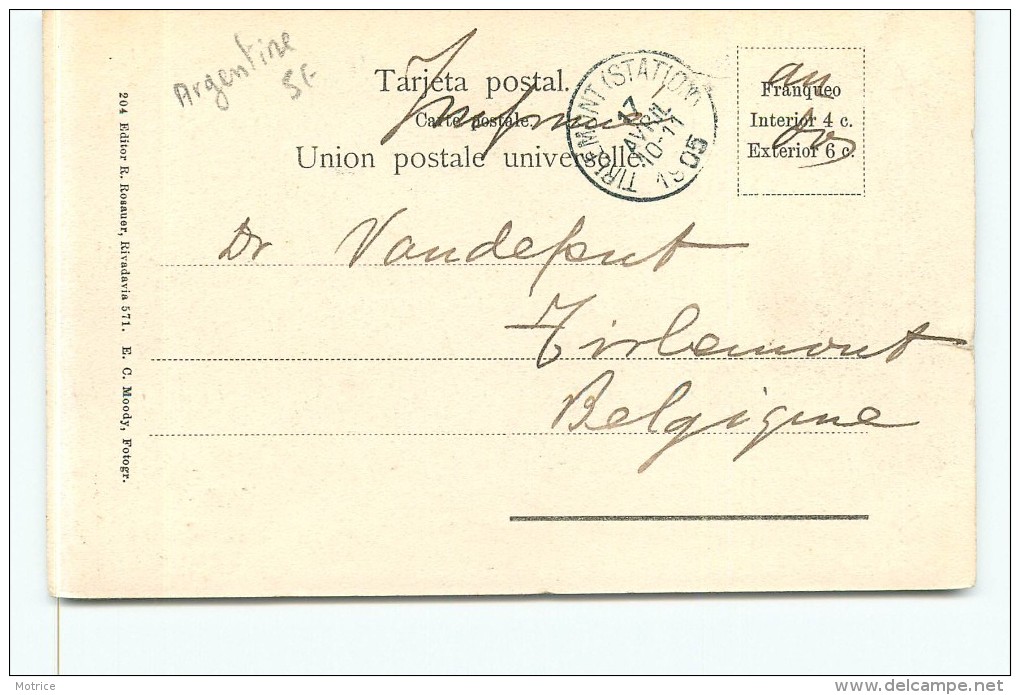 Argentine
5F
Tarjeta postal.
Carte postale.
Imprimé
Union postale universelle.
TIRLEMONT (STATION)
17
AVRIL
10-11
1905
Franqueo
Interior 4 c.
Exterior 6 c.
au
dos
Dr Vandeput
Tirlemont
Belgique
204 Editor R. Rosauer, Rivadavia 571. E. C. Moody, Fotogr.
Motrice
www.delcampe.net